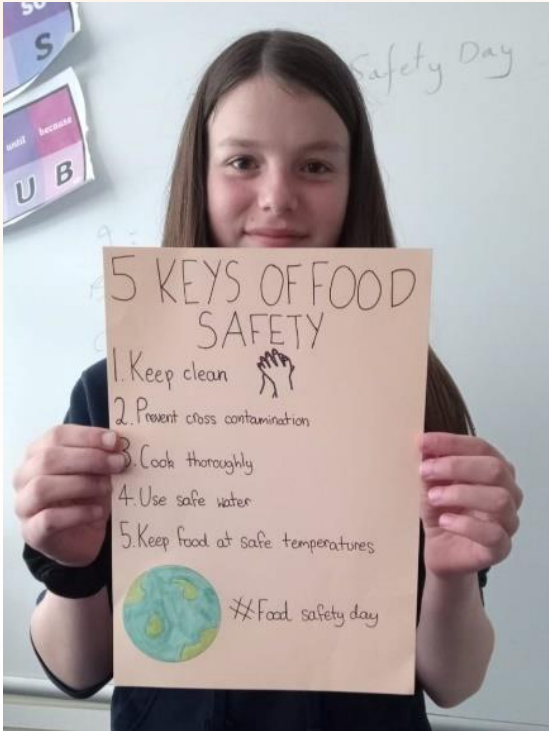 so
S
until because
U B
Safety Day
5 KEYS OF FOOD
SAFETY
1. Keep clean
2. Prevent cross contamination
3. Cook thoroughly
4. Use safe water
5. Keep food at safe temperatures
#Food safety day